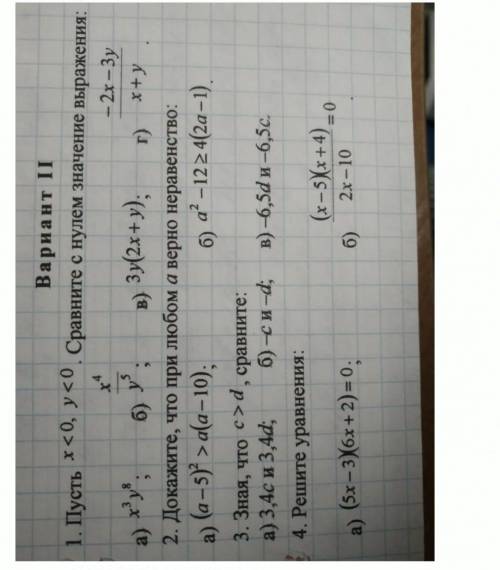 Вариант II
1. Пусть x < 0, y < 0. Сравните с нулем значение выражения:
а) x³y⁸; б) x⁴/y⁵; в) 3y(2x + y); г) (−2x − 3y)/(x + y).
2. Докажите, что при любом a верно неравенство:
а) (a − 5)² > a(a − 10); б) a² − 12 ≥ 4(2a − 1).
3. Зная, что c > d, сравните:
а) 3,4c и 3,4d; б) −c и −d; в) −6,5d и −6,5c.
4. Решите уравнения:
а) (5x − 3)(6x + 2) = 0; б) (x − 5)(x + 4)/(2x − 10) = 0.